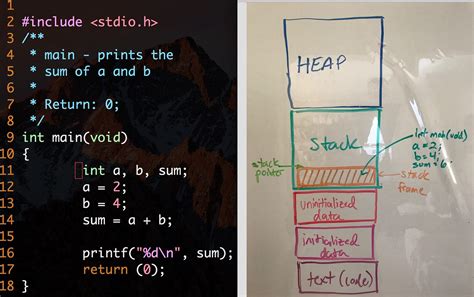 1
2 #include <stdio.h>
3 /**
4  * main - prints the
5  * sum of a and b
6  *
7  * Return: 0;
8  */
9 int main(void)
10 {
11 int a, b, sum;
12 a = 2;
13 b = 4;
14 sum = a + b;
15
16 printf("%d\n", sum);
17 return (0);
18 }
HEAP
stack
int main(void)
a = 2;
b = 4;
sum = 6
stack
pointer
stack
frame
uninitialized
data
initialized
data
text (code)